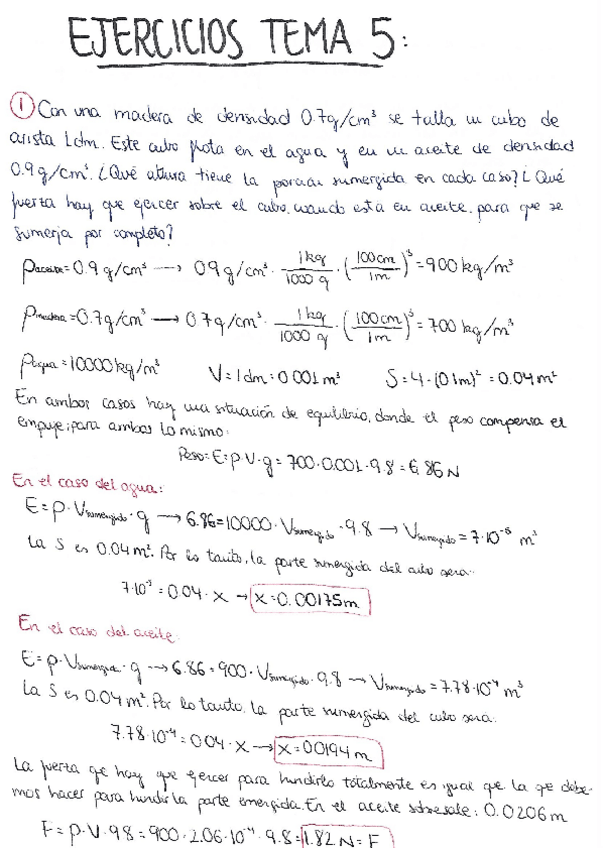 EJERCICIOS TEMA 5:
① Con una madera de densidad 0.7g/cm³ se talla un cubo de
arista 1dm. Este cubo flota en el agua y en un aceite de densidad
0.9g/cm³. ¿Qué altura tiene la porción sumergida en cada caso? ¿Qué
fuerza hay que ejercer sobre el cubo, cuando esta en aceite, para que se
sumerja por completo?
ρaceite = 0.9 g/cm³ → 0.9 g/cm³ · 1kg/1000 g · (100cm/1m)³ = 900 kg/m³
ρmadera = 0.7g/cm³ → 0.7 g/cm³ · 1kg/1000 g · (100cm/1m)³ = 700 kg/m³
ρagua = 10000 kg/m³ V = 1dm = 0.001 m³ S = 4·(0.1m)² = 0.04 m²
En ambos casos hay una situación de equilibrio, donde el peso compensa el
empuje; para ambos lo mismo:
Peso = E = ρ·V·g = 700·0.001·9.8 = 6.86 N
En el caso del agua:
E = ρ·Vsumergido·g → 6.86 = 10000·Vsumergido·9.8 → Vsumergido = 7·10⁻⁵ m³
La S es 0.04 m². Por lo tanto, la parte sumergida del cubo sera:
7·10⁻⁵ = 0.04·x → x = 0.00175m
En el caso del aceite:
E = ρ·Vsumergido·g → 6.86 = 900·Vsumergido·9.8 → Vsumergido = 7.78·10⁻⁴ m³
La S es 0.04 m². Por lo tanto, la parte sumergida del cubo sera:
7.78·10⁻⁴ = 0.04·x → x = 0.0194 m
La fuerza qe hay que ejercer para hundirlo totalmente es igual que la qe debe-
mos hacer para hundir la parte emergida. En el aceite sobresale: 0.0206m
F = ρ·V·9.8 = 900·2.06·10⁻⁴·9.8 = 1.82 N = F